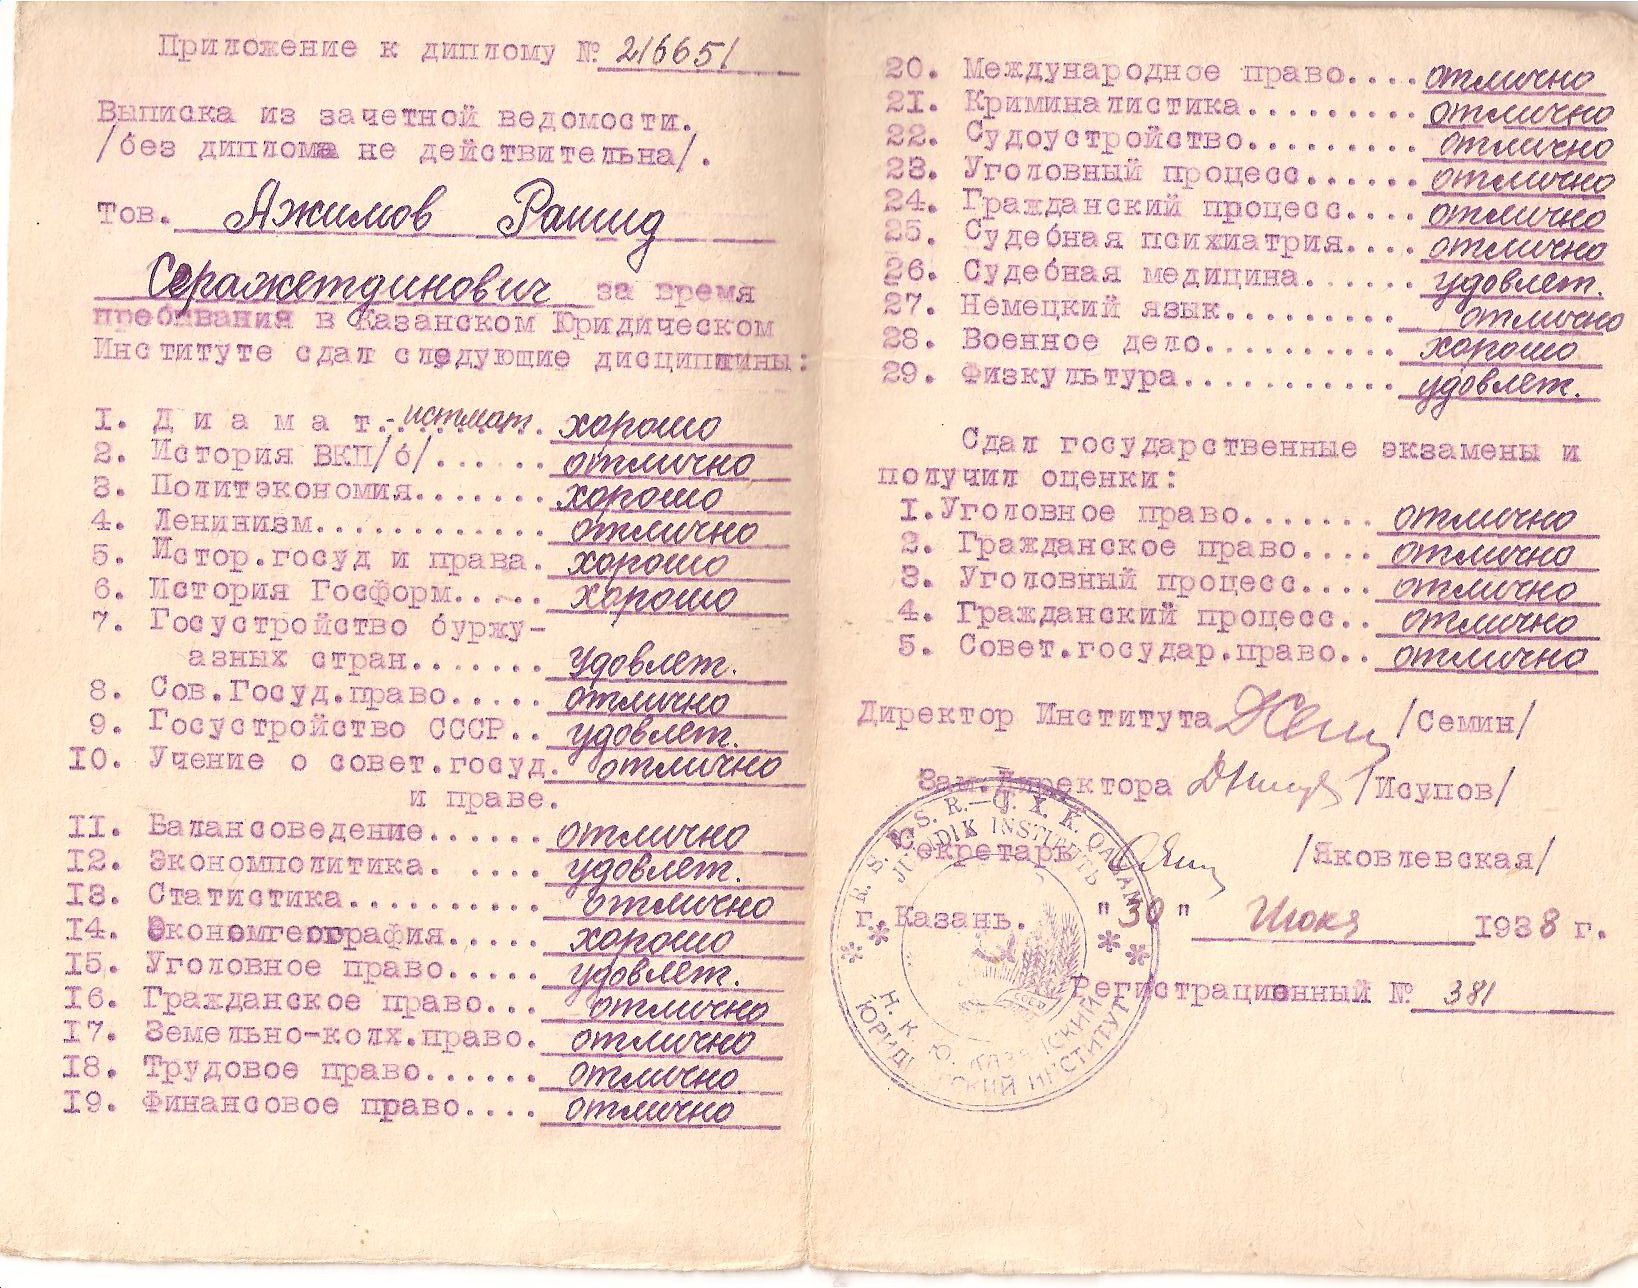 Приложение к диплому № 216651
Выписка из зачетной ведомости.
/без диплома не действительна/.
тов. Ажимов Рашид
Серажетдинович за время
пребывания в Казанском Юридическом
Институте сдал следующие дисциплины:
1. Д и а м а т.-истмат. хорошо
2. История ВКП/б/...... отлично
3. Политэкономия....... хорошо
4. Ленинизм............ отлично
5. Истор.госуд и права. хорошо
6. История Госформ..... хорошо
7. Госустройство буржу-
азных стран....... удовлет.
8. Сов.Госуд.право..... отлично
9. Госустройство СССР.. удовлет.
10. Учение о совет.госуд. отлично
и праве.
11. Балансоведение...... отлично
12. Экономполитика. .... удовлет.
13. Статистика.......... отлично
14. Экономгеография..... хорошо
15. Уголовное право..... удовлет.
16. Гражданское право... отлично
17. Земельно-колх.право. отлично
18. Трудовое право...... отлично
19. Финансовое право.... отлично
20. Международное право.... отлично
21. Криминалистика......... отлично
22. Судоустройство......... отлично
23. Уголовный процесс...... отлично
24. Гражданский процесс.... отлично
25. Судебная психиатрия.... отлично
26. Судебная медицина...... удовлет.
27. Немецкий язык.......... отлично
28. Военное дело........... хорошо
29. Физкультура............ удовлет.
Сдал государственные экзамены и
получил оценки:
1.Уголовное право....... отлично
2. Гражданское право.... отлично
3. Уголовный процесс.... отлично
4. Гражданский процесс.. отлично
5. Совет.государ.право.. отлично
Директор Института /Семин/
Зам.Директора /Исупов/
Секретарь /Яковлевская/
г. Казань. "30" Июня 1938 г.
Регистрационный № 381
JURIDIK INSTITUTЬ
Н. К. Ю. КАЗАНСКИЙ
ЮРИДИЧЕСКИЙ ИНСТИТУТ